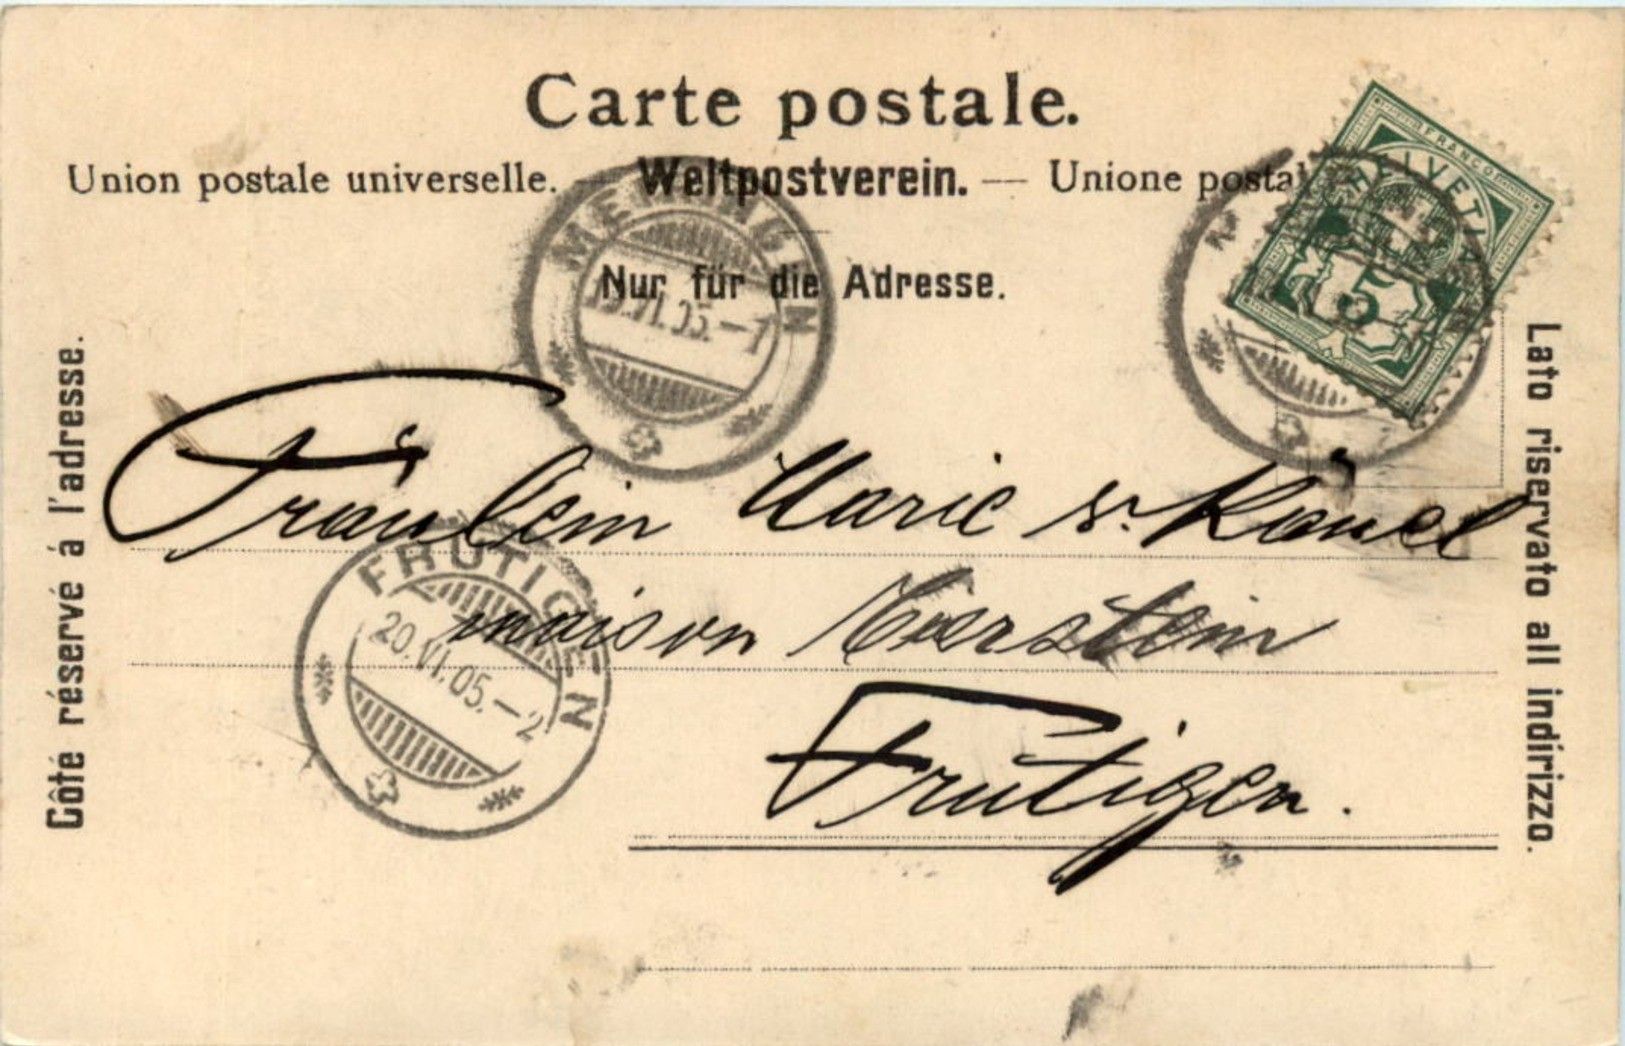 Carte postale.
Union postale universelle. — Weltpostverein. — Unione postal
Nur für die Adresse.
Côté réservé á l'adresse.
Lato riservato all indirizzo.
MEIRINGEN
19.VI.05.—7
FRANCO
HELVETIA
5
Fräulein Marie v. Känel
maison
Frutigen.
FRUTIGEN
20.VI.05.—2